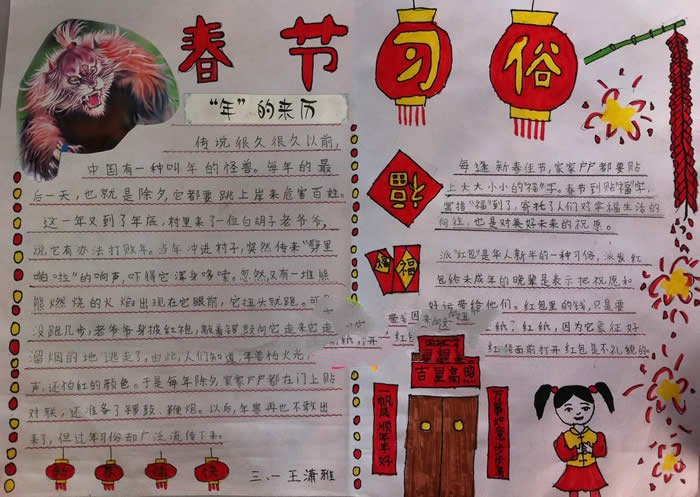 春节习俗
“年”的来历
传说很久很久以前，
中国有一种叫年的怪兽。每年的最
后一天，也就是除夕，它都要跳上岸来危害百姓。
这一年又到了年底，村里来了一位白胡子老爷爷，
说它有办法打败年。当年冲进村子，突然传来“劈里
啪啦”的响声，吓得它浑身哆嗦。忽然，又有一堆熊
熊燃烧的火焰出现在它眼前，它扭头就跑。可
没跑几步，老爷爷身披红袍，敲着锣鼓向它走来它一
溜烟的地逃走了。由此，人们知道，年害怕火光，
声，还怕红的颜色。于是每年除夕，家家户户都在门上贴
对联，还准备了锣鼓、鞭炮。以后，年兽再也不敢出
来了，但过年习俗却广泛流传下来。
新春快
三、一 王潇雅
每逢新春佳节，家家户户都要贴
上大大小小的“福”字。春节到贴“福”字，
寓指“福”到了，寄托了人们对幸福生活的
向往，也是对美好未来的祝愿。
派“红包”是华人新年的一种习俗，派发红
包给未成年的晚辈是表示把祝愿和
好运带给他们。红包里的钱，只是要
纸？红纸，因为它象征好
纸，打开
红
领面前打开红包是不礼貌的
福
福
吉星高照
一帆风顺年年好
万事如意步步高